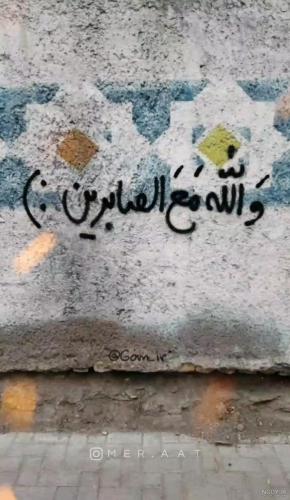 وَ اللّٰه مَعَ الصابرین :)
@Gom_ir
MER.AAT